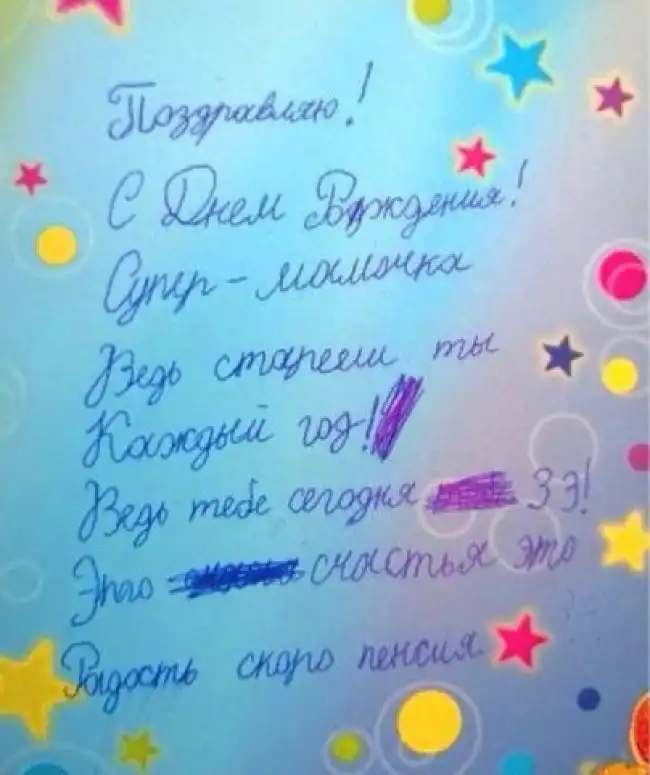 Поздравляю!
С Днем Рождения!
Супер-мамочка
Ведь старееш ты
Каждый год!
Ведь тебе сегодня 39!
Это счастья это
Радость скоро пенсия